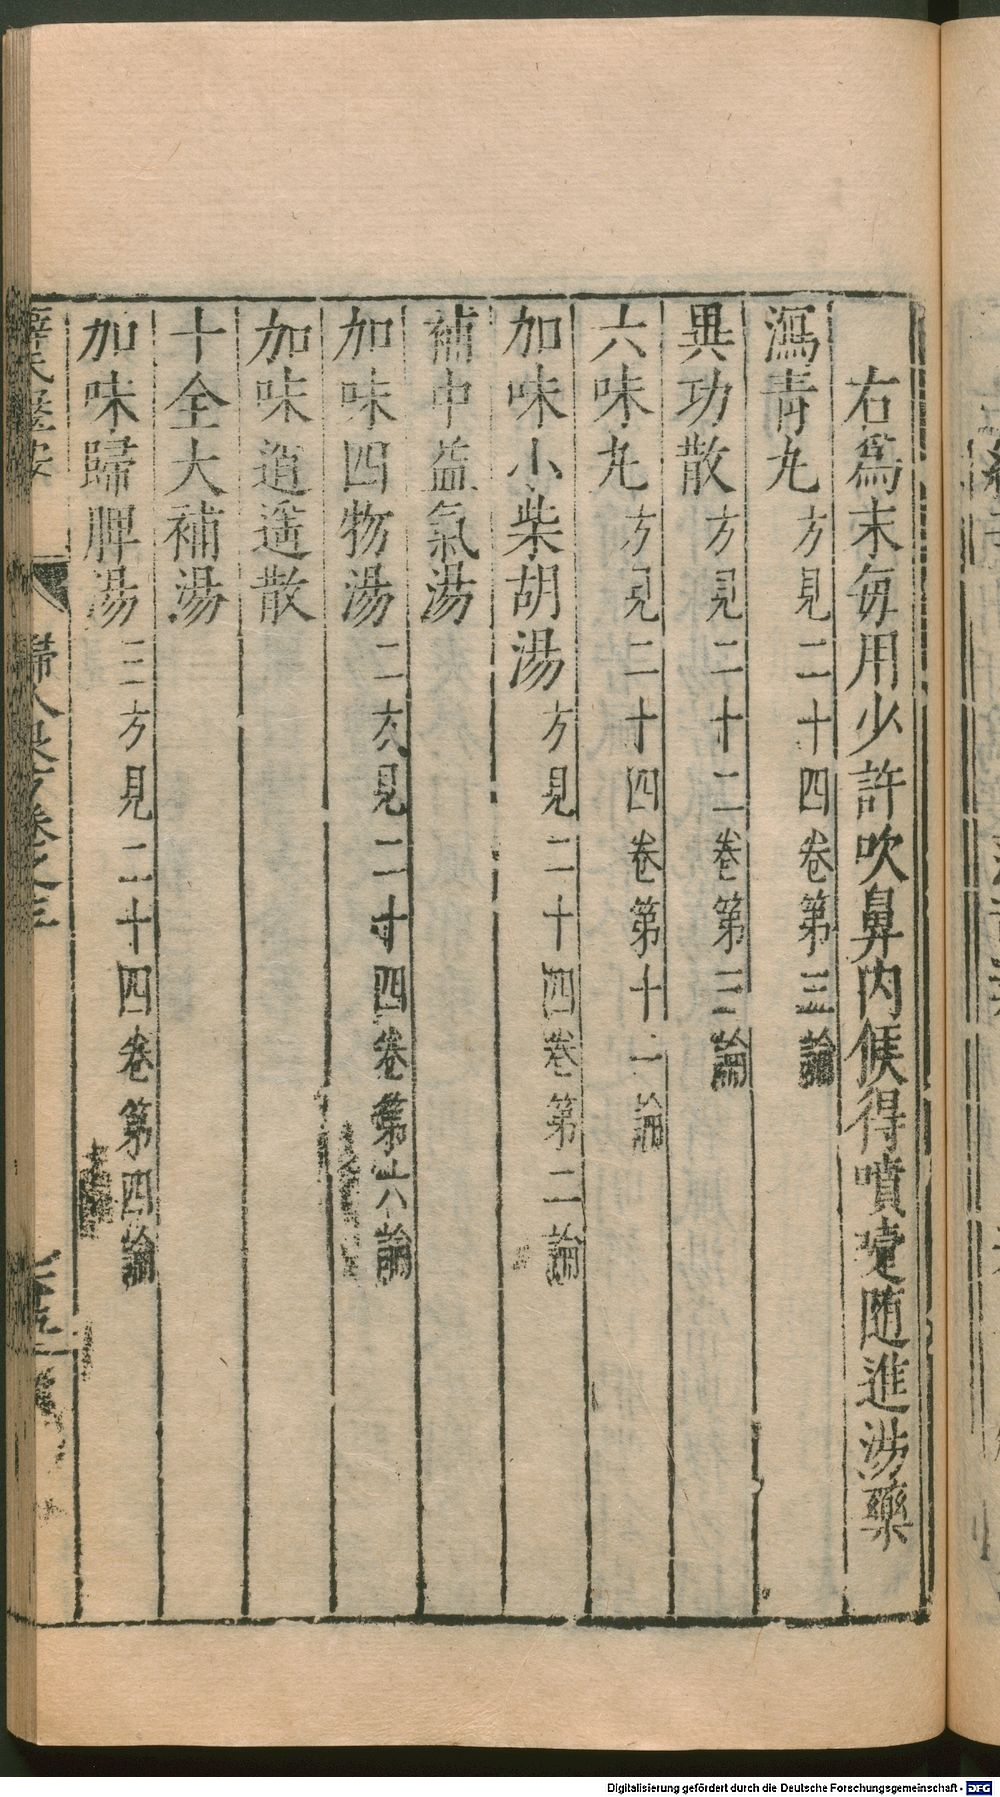 右爲末每用少許吹鼻内候得噴嚏随進湯藥
瀉青丸方見二十四卷第三論
異功散方見二十二卷第三論
六味丸方見二十四卷第十一論
加味小柴胡湯方見二十四卷第二論
補中益氣湯
加味四物湯二方見二十四卷第六論
加味逍遥散
十全大補湯
加味歸脾湯三方見二十四卷第四論
薛氏醫按 婦人良方卷之三
Digitalisierung gefördert durch die Deutsche Forschungsgemeinschaft - DFG